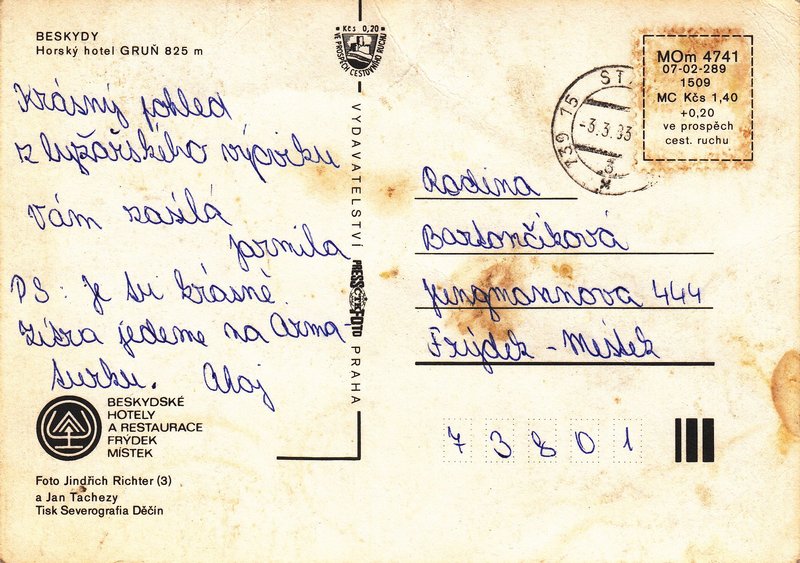 BESKYDY
Horský hotel GRUŇ 825 m
Krásný pohled
z lyžařského výcviku
Vám zasílá
Jarmila
PS: Je tu krásně.
Zítra jedeme na Arma-
turku. Ahoj
BESKYDSKÉ
HOTELY
A RESTAURACE
FRÝDEK
MÍSTEK
Foto Jindřich Richter (3)
a Jan Tachezy
Tisk Severografia Děčín
Kčs 0,20
VE PROSPĚCH CESTOVNÍHO RUCHU
VYDAVATELSTVÍ PRESSFOTO PRAHA
739 15 ST
-3.3.83
3
MOm 4741
07-02-289
1509
MC Kčs 1,40
+0,20
ve prospěch
cest. ruchu
Rodina
Bartončíková
Jungmannova 444
Frýdek - Místek
73801